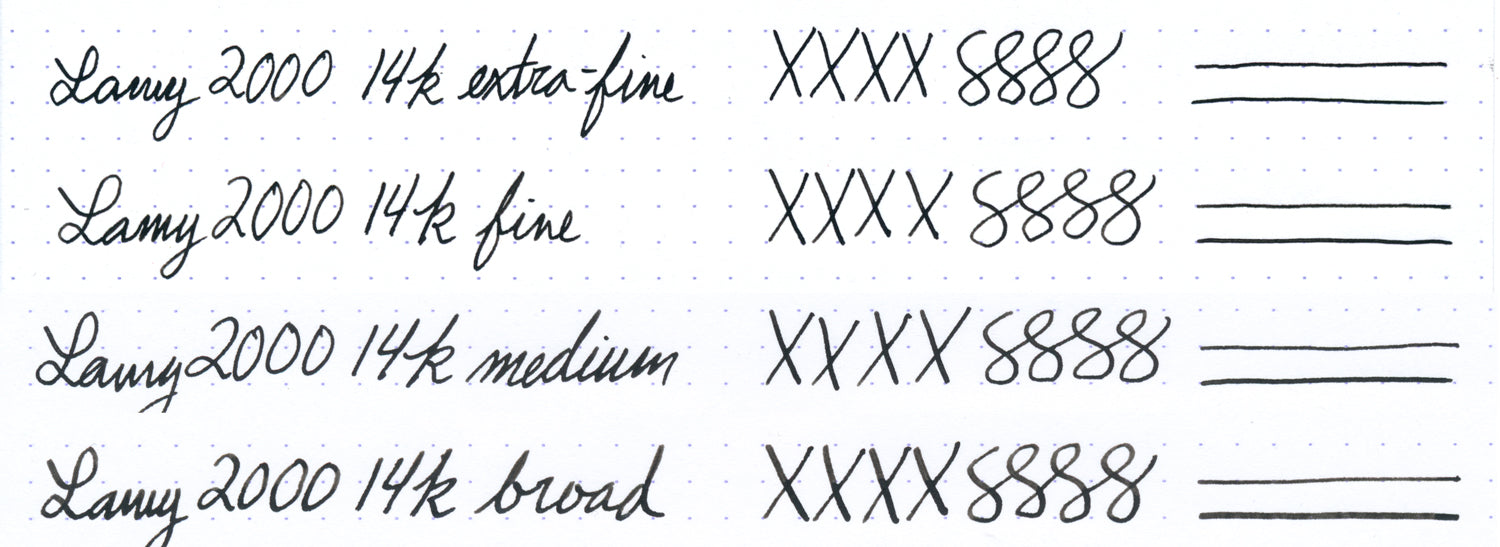 Lamy 2000 14k extra-fine XXXX 8888
Lamy 2000 14k fine XXXX 8888
Lamy 2000 14k medium XXXX 8888
Lamy 2000 14k broad XXXX 8888